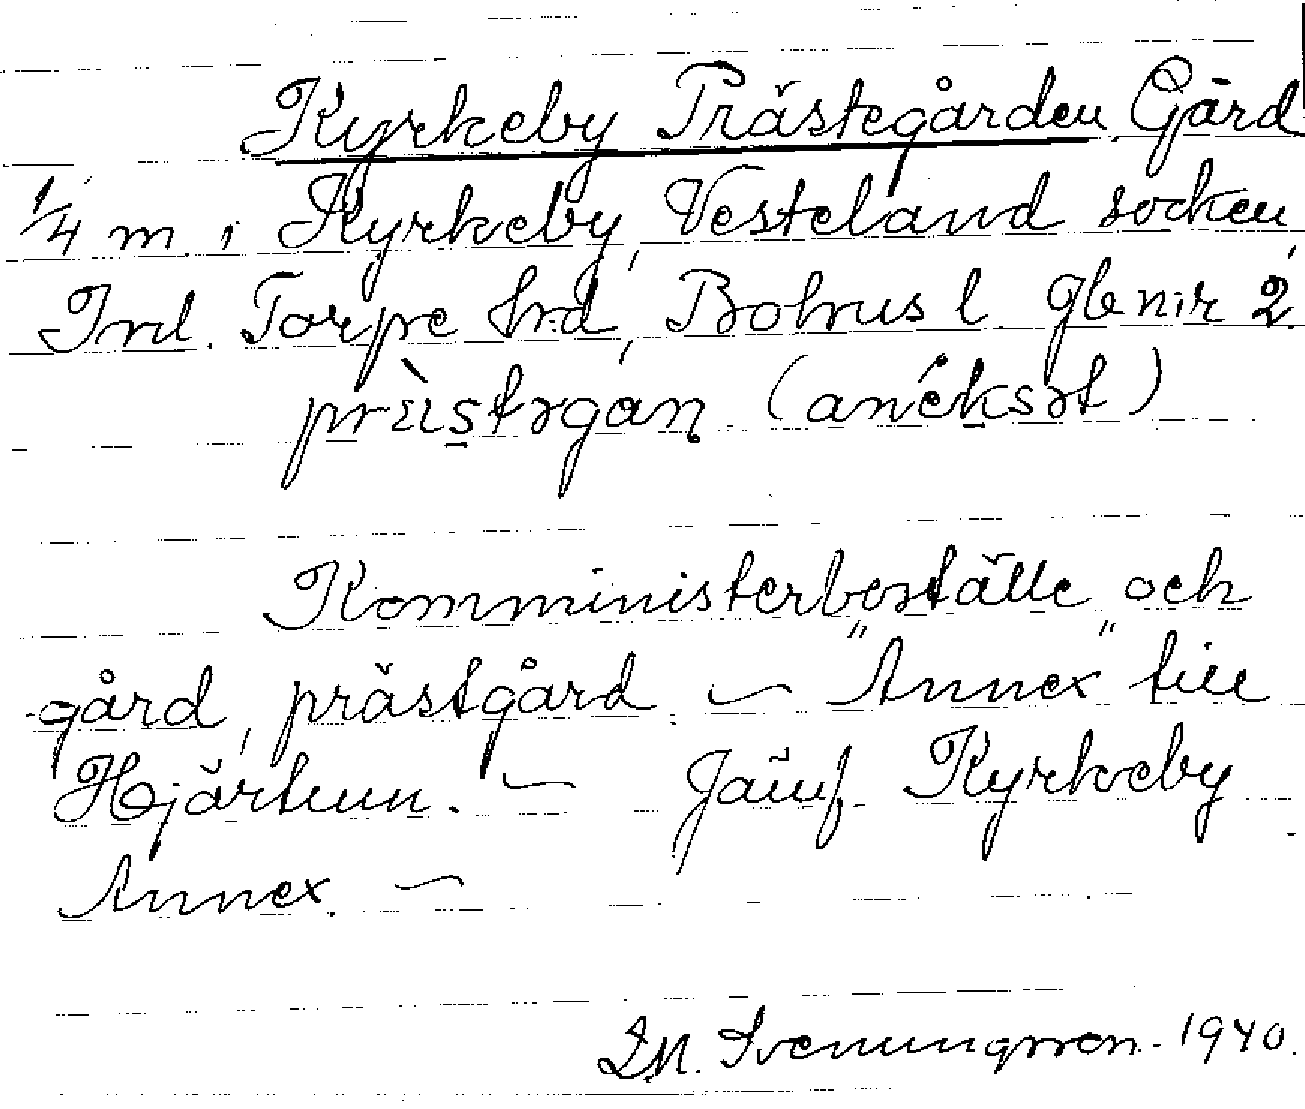 Kyrkeby Prästegården Gård
1/4 m. i Kyrkeby, Vesteland socken,
Inl. Torpe hrd, Bohus l. Gbnir 2.
Komministerboställe och
gård, prästgård. — "Annex" till
Hjärtum. — Jämf. Kyrkeby
Annex. —
Svenungsson. 1940.